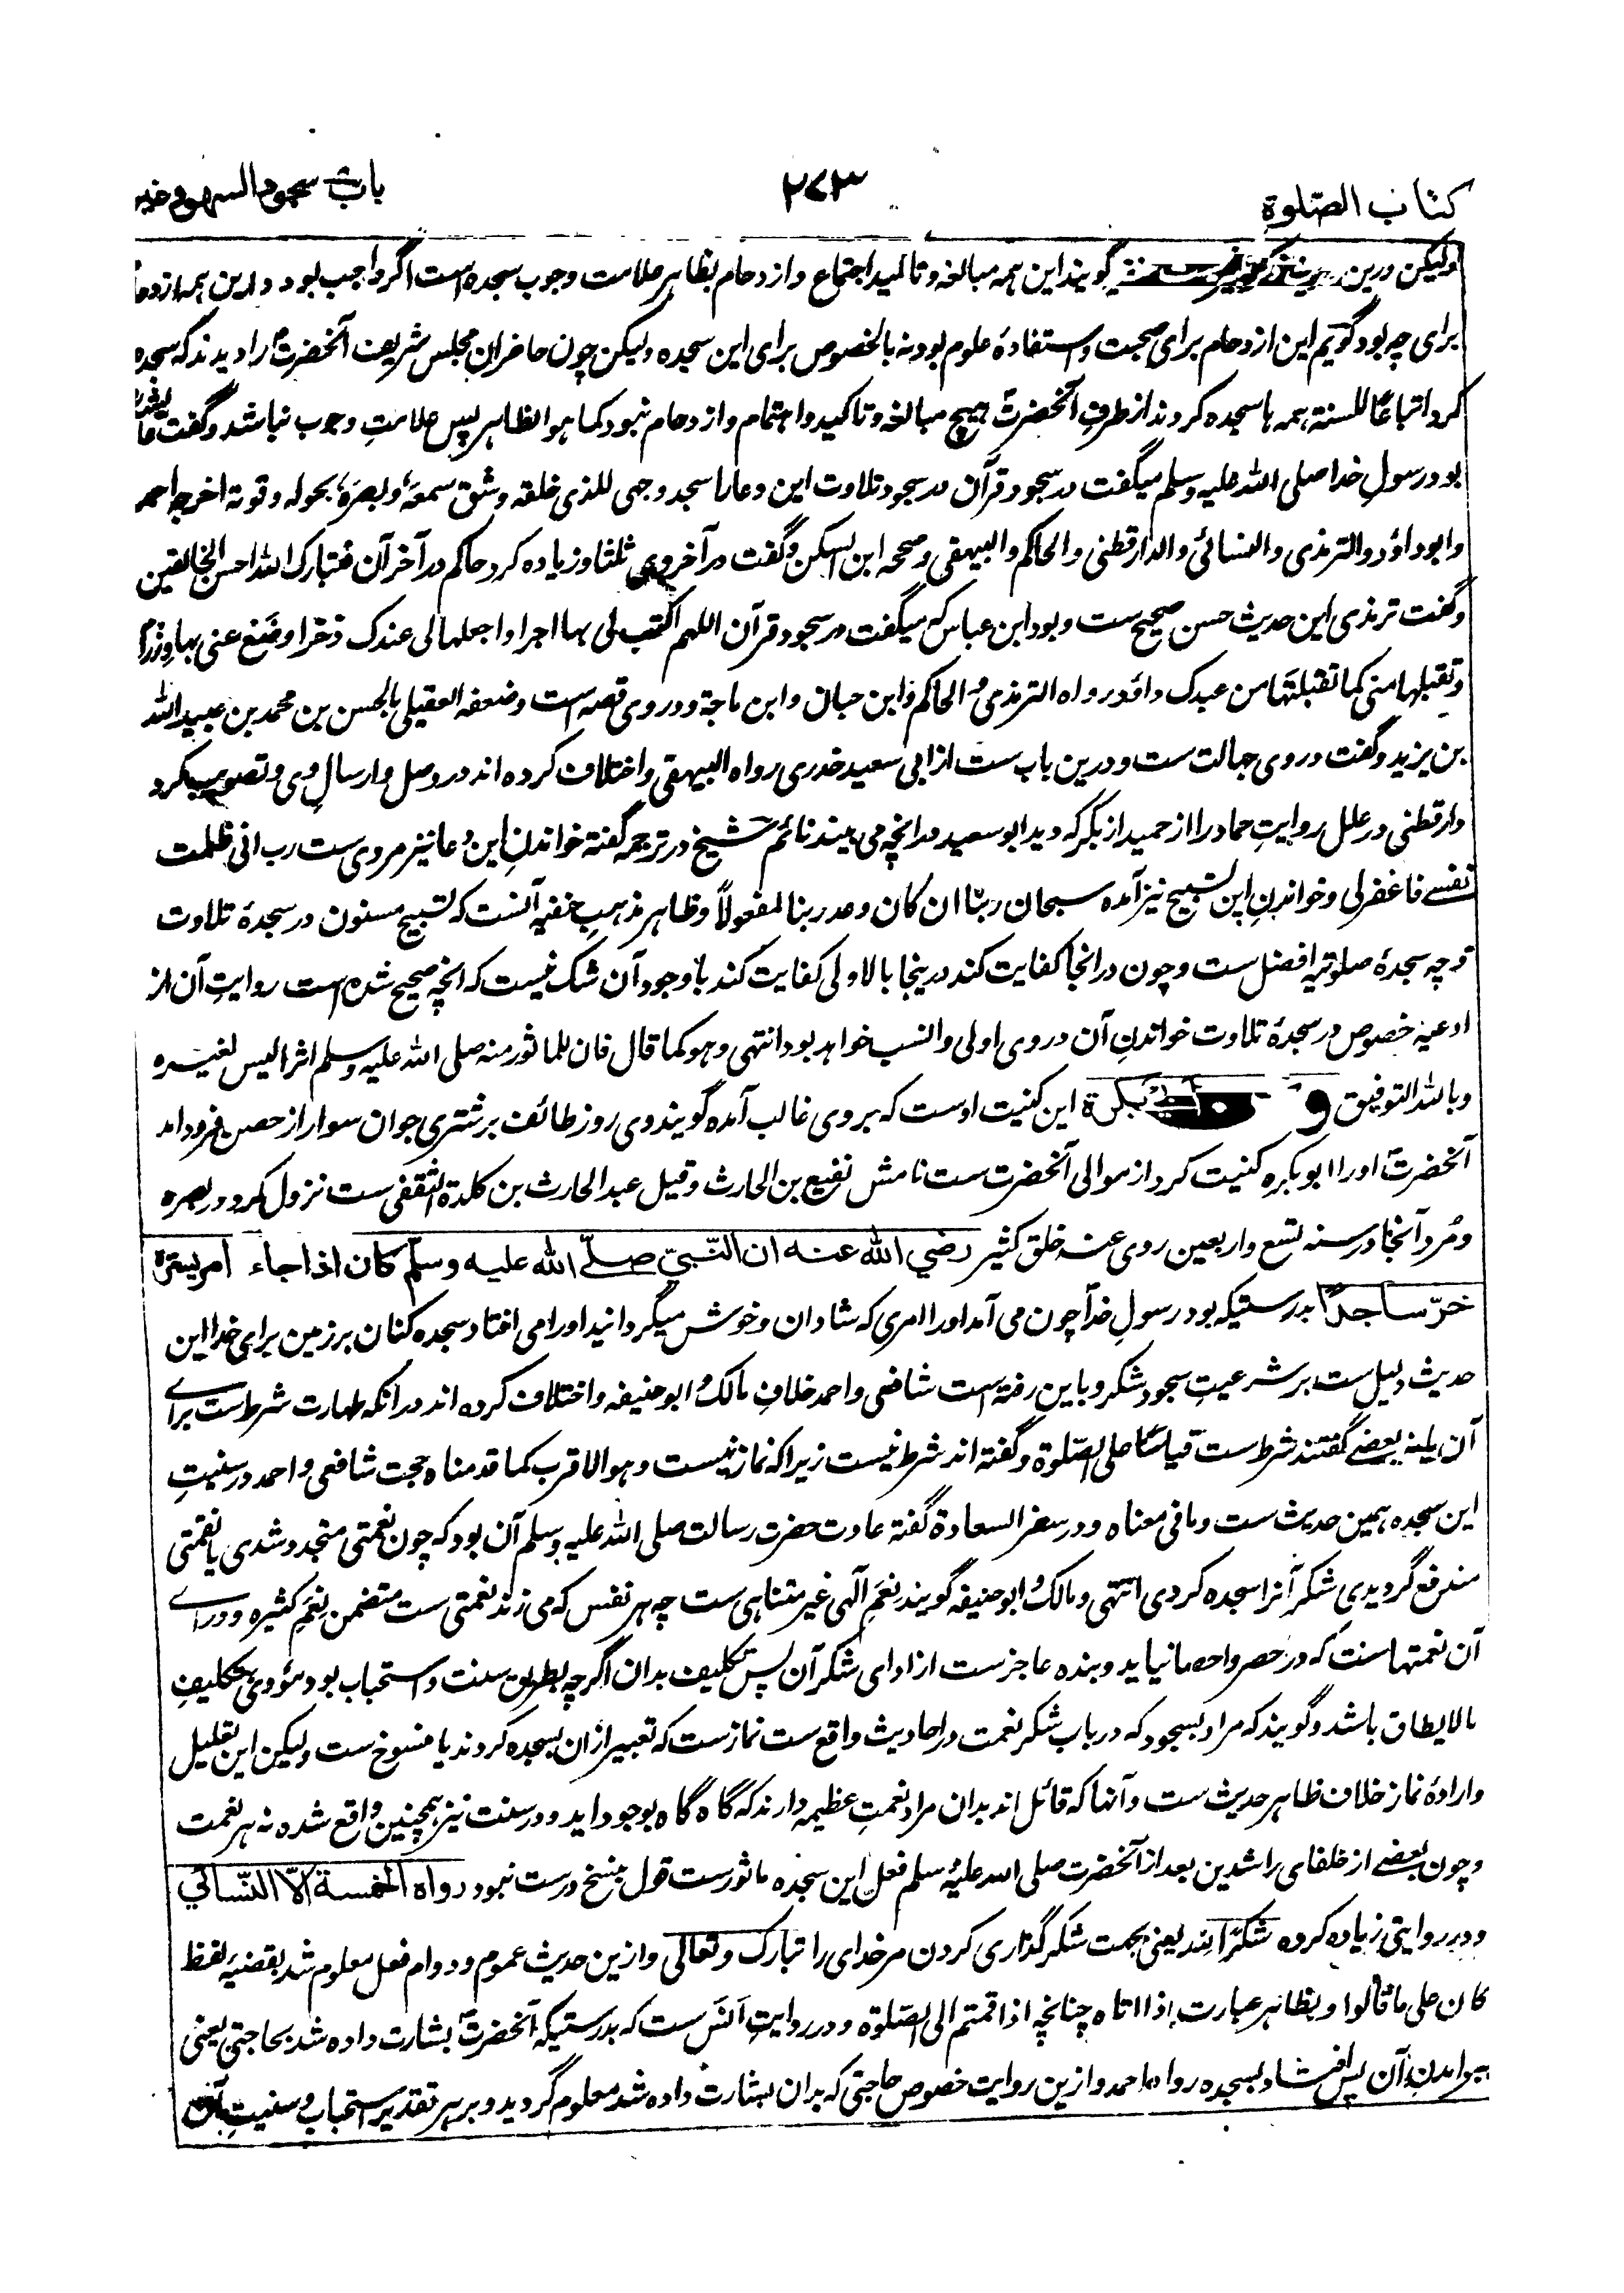 کتاب الصّلوة
۲۷۳
باب سجود السهو وغیره
ولیکن درین گویند این همه مبالغه و تاکید اجتماع و ازدحام بظاهر علامت وجوب سجده است اگر واجب بود درین همه ازدحام
برای چه بود گویم این ازدحام برای صحبت و استفادهٔ علوم بود نه بالخصوص برای این سجده ولیکن چون حاضران مجلس شریف آنحضرت را دیدند که سجده
کرد اتباعًا للسنة همه ها سجده کردند از طرفِ آنحضرت هیچ مبالغه و تاکید و اهتمام و ازدحام نبود کما هو الظاهر پس علامتِ وجوب نباشد و گفت عایشه
بود رسولِ خدا صلی الله علیه وسلم میگفت در سجودِ قرآن در سجود تلاوت این دعا را سجد وجهی للذی خلقه وشق سمعهٗ وبصرهٗ بحوله وقوته اخرجه احمد
وابوداؤد والترمذی والنسائی والدارقطنی والحاکم والبیهقی وصححه ابن السکن و گفت در آخر وی ثلثا و زیاده کرد حاکم در آخر آن فتبارک الله احسن الخالقین
و گفت ترمذی این حدیث حسن صحیح ست و بود ابن عباس که میگفت در سجود قرآن اللهم اکتب لی بها اجرا واجعلها لی عندک ذخرا وضع عنی بها وزرا
وتقبلها منی کما تقبلتها من عبدک داؤد رواه الترمذی والحاکم وابن حبان وابن ماجة و در وی قصه است وضعفه العقیلی بالحسن بن محمد بن عبیدالله
بن یزید و گفت در وی جهالت ست و درین باب ست از ابی سعید خدری رواه البیهقی و اختلاف کرده اند در وصل و ارسالِ وی و تصویب کرد
دارقطنی در علل روایتِ حماد را از حمید از بکر که دید ابو سعید در انچه می بیند نائم شیخ در ترجمه گفته خواندنِ این دعا نیز مروی ست رب انی ظلمت
نفسے فاغفرلی و خواندنِ این تسبیح نیز آمده سبحان ربنا ان کان وعد ربنا لمفعولًا و ظاهر مذهبِ حنفیه آنست که تسبیح مسنون در سجدهٔ تلاوت
چه سجدهٔ صلوتیه افضل ست و چون در انجا کفایت کند درینجا بالاولی کفایت کند با وجود آن شک نیست که انچه صحیح شده است روایتِ آن از
ادعیه خصوص در سجدهٔ تلاوت خواندنِ آن در وی اولی و انسب خواهد بود انتهی وهو کما قال فان للماثور منه صلی الله علیه وسلم اثرا لیس لغیره
وبالله التوفیق و بکرة این کنیت اوست که بر وی غالب آمده گویند وی روز طائف بر شتری جوان سوار از حصن فرود امد
آنحضرت او را ابوبکره کنیت کرد از موالی آنحضرت ست نامش نفیع بن الحارث وقیل عبدالحارث بن کلدة الثقفی ست نزول کرد در بصره
و مُرد آنجا در سنه تسع واربعین روی عنه خلق کثیر رضی الله عنه ان النّبیّ صلّے الله علیه وسلّم کان اذا جاء امر یسرّه
خرّ ساجدًا بدرستیکه بود رسولِ خدا چون می آمد او را امری که شادان و خوش میگردانید او را می افتاد سجده کنان بر زمین برای خدا این
حدیث دلیل ست بر شرعیتِ سجود شکر و باین رفته است شافعی و احمد خلافِ مالک و ابو حنیفه و اختلاف کرده اند در انکه طهارت شرط ست برائے
آن یا نه بعضے گفتند شرط ست قیاسًا علی الصّلوة و گفته اند شرط نیست زیرا که نماز نیست وهو الاقرب کما قدمناه حجت شافعی و احمد در سنیتِ
این سجده همین حدیث ست وما فی معناه و در سفر السعادة گفته عادت حضرت رسالت صلی الله علیه وسلم آن بود که چون نعمتی متجدد شدی یا نقمتی
مندفع گردیدی شکر آنرا سجده کردی انتهی و مالک و ابو حنیفه گویند نعمِ آلهی غیر متناهی ست چه هر نفس که می زند نعمتی ست متضمن نعمِ کثیره و درائے
آن نعمتهاست که در حصر و احصا نیاید و بنده عاجز ست از ادای شکر آن پس تکلیف بدان اگرچه بطریق سنت و استحباب بود مؤدی بتکلیفِ
مالایطاق باشد و گویند که مراد بسجود که در باب شکر نعمت در احادیث واقع ست نماز ست که تعبیر از ان بسجده کردند یا منسوخ ست ولیکن این تعلیل
و ارادهٔ نماز خلاف ظاهر حدیث ست و آنها که قائل اند بدان مراد نعمتِ عظیمه دارند که گاه گاه بوجود اید و در سنت نیز همچنین واقع شده نه هر نعمت
و چون بعضے از خلفای راشدین بعد از آنحضرت صلی الله علیه وسلم فعل این سجده ماثور ست قول بنسخ درست نبود رواه الخمسة الّا النّسائی
و در روایتی زیاده کرده شکرًا لله یعنی بجهت شکر گذاری کردن مر خدای را تبارک وتعالی و ازین حدیث عموم و دوام فعل معلوم شد بقضیهٔ لفظ
کان علی ما قالوا و بظاهر عبارت اذا اتاه چنانچه اذا قمتم الی الصّلوة و در روایتِ انس ست که بدرستیکه آنحضرت بشارت داده شد بحاجتی یعنی
ببرامدن آن پس افتاد بسجده رواه احمد و ازین روایت خصوص حاجتی که بدان بشارت داده شد معلوم گردید و بر هر تقدیر استحباب و سنیتِ آن